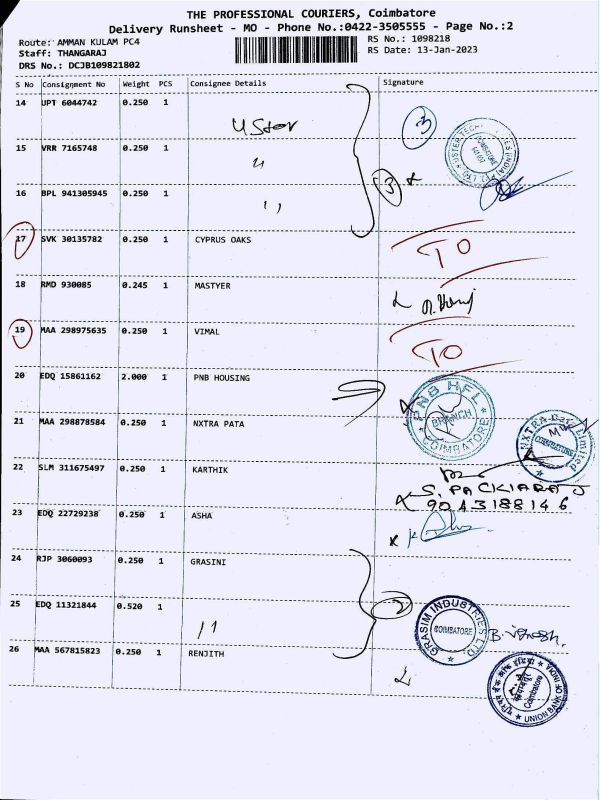 THE PROFESSIONAL COURIERS, Coimbatore
Delivery Runsheet - MO - Phone No.:0422-3505555 - Page No.:2
Route: AMMAN KULAM PC4
RS No.: 1098218
Staff: THANGARAJ
RS Date: 13-Jan-2023
DRS No.: DCJB109821802
S No Consignment No Weight PCS Consignee Details Signature
14 UPT 6044742 0.250 1
Uster
3
15 VRR 7165748 0.250 1 "
16 BPL 941305945 0.250 1 "
3
17 SVK 30135782 0.250 1 CYPRUS OAKS
TO
18 RMD 930085 0.245 1 MASTYER
19 MAA 298975635 0.250 1 VIMAL
TO
20 EDQ 15861162 2.000 1 PNB HOUSING
PNB HFL
BRANCH
COIMBATORE
21 MAA 298878584 0.250 1 NXTRA PATA
NXTRA Data Limited
COIMBATORE
22 SLM 311675497 0.250 1 KARTHIK
S. PACKIARAJ
9043188146
23 EDQ 22729238 0.250 1 ASHA
24 RJP 3060093 0.250 1 GRASINI
25 EDQ 11321844 0.520 1 "
GRASIM INDUSTRIES LTD
COIMBATORE
26 MAA 567815823 0.250 1 RENJITH
Coimbatore
UNION BANK OF INDIA